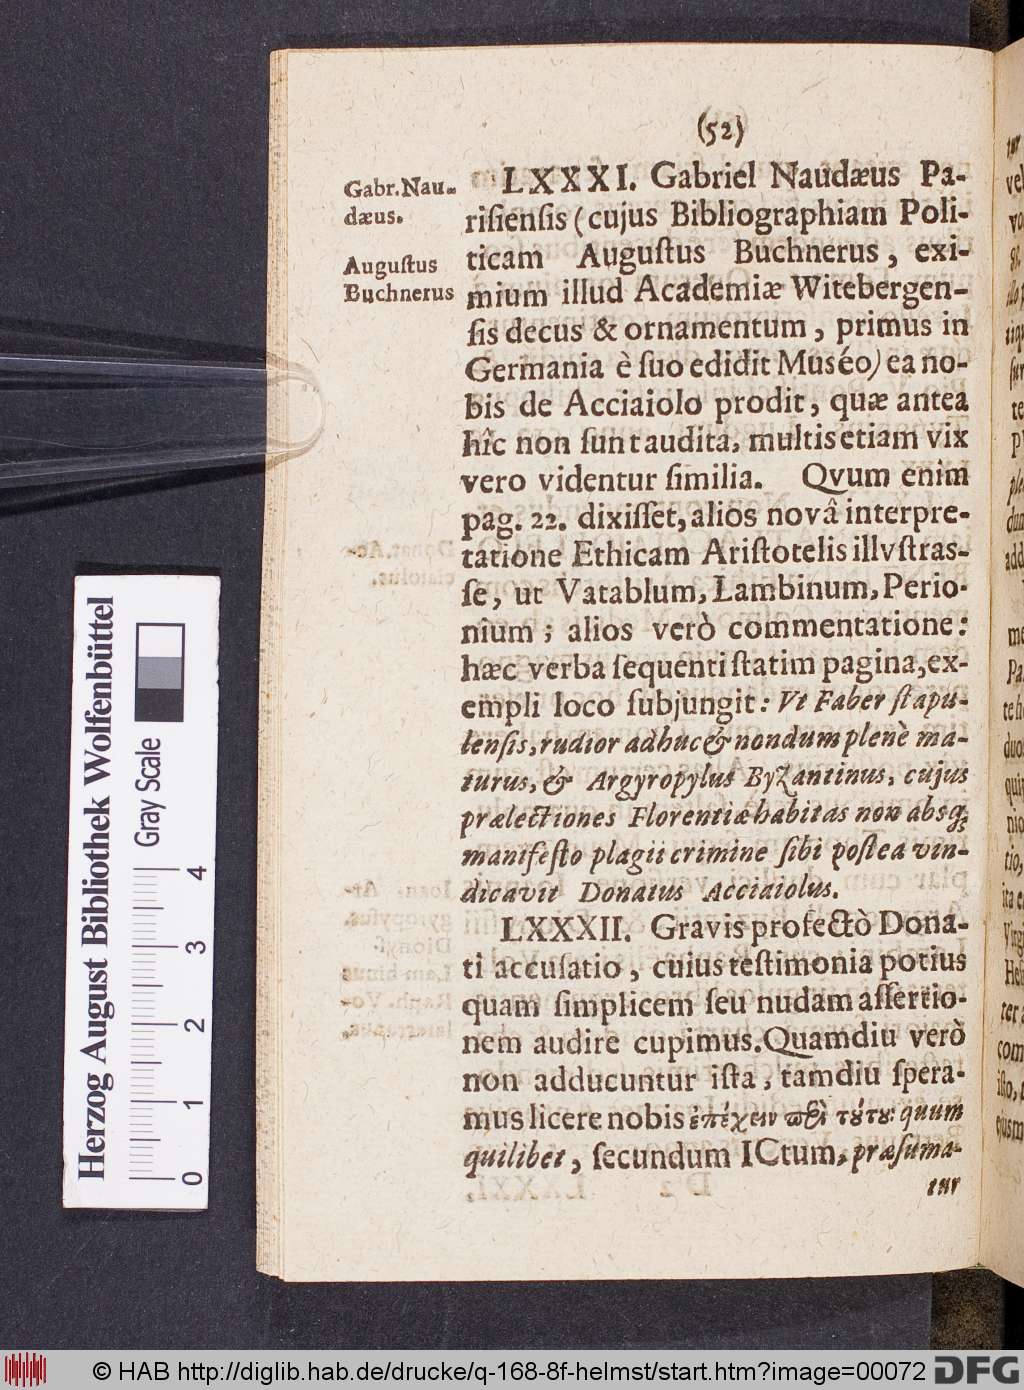 (52)
Gabr. Nau-
dæus.
Auguſtus
Buchnerus
LXXXI. Gabriel Naudæus Pa-
riſienſis (cujus Bibliographiam Poli-
ticam Auguſtus Buchnerus, exi-
mium illud Academiæ Witebergen-
ſis decus & ornamentum, primus in
Germania è ſuo edidit Muséo) ea no-
bis de Acciaiolo prodit, quæ antea
hîc non ſunt audita, multis etiam vix
vero videntur ſimilia. Qvum enim
pag. 22. dixiſſet, alios novâ interpre-
tatione Ethicam Ariſtotelis illvſtras-
ſe, ut Vatablum, Lambinum, Perio-
nium; alios verò commentatione:
hæc verba ſequenti ſtatim pagina, ex-
empli loco ſubjungit: Vt Faber ſtapu-
lenſis, rudior adhuc & nondum plenè ma-
turus, & Argyropylus Byzantinus, cujus
prælectiones Florentiæ habitas non absq;
manifeſto plagii crimine ſibi poſtea vin-
dicavit Donatus Acciaiolus.
LXXXII. Gravis profectò Dona-
ti accuſatio, cuius teſtimonia potius
quam ſimplicem ſeu nudam aſſertio-
nem audire cupimus. Quamdiu verò
non adducuntur iſta, tamdiu ſpera-
mus licere nobis ἐπέχειν πεὶ τούτου: quum
quilibet, ſecundum ICtum, præſuma-
tur
Herzog August Bibliothek Wolfenbüttel
Gray Scale
0 1 2 3 4
© HAB http://diglib.hab.de/drucke/q-168-8f-helmst/start.htm?image=00072
DFG